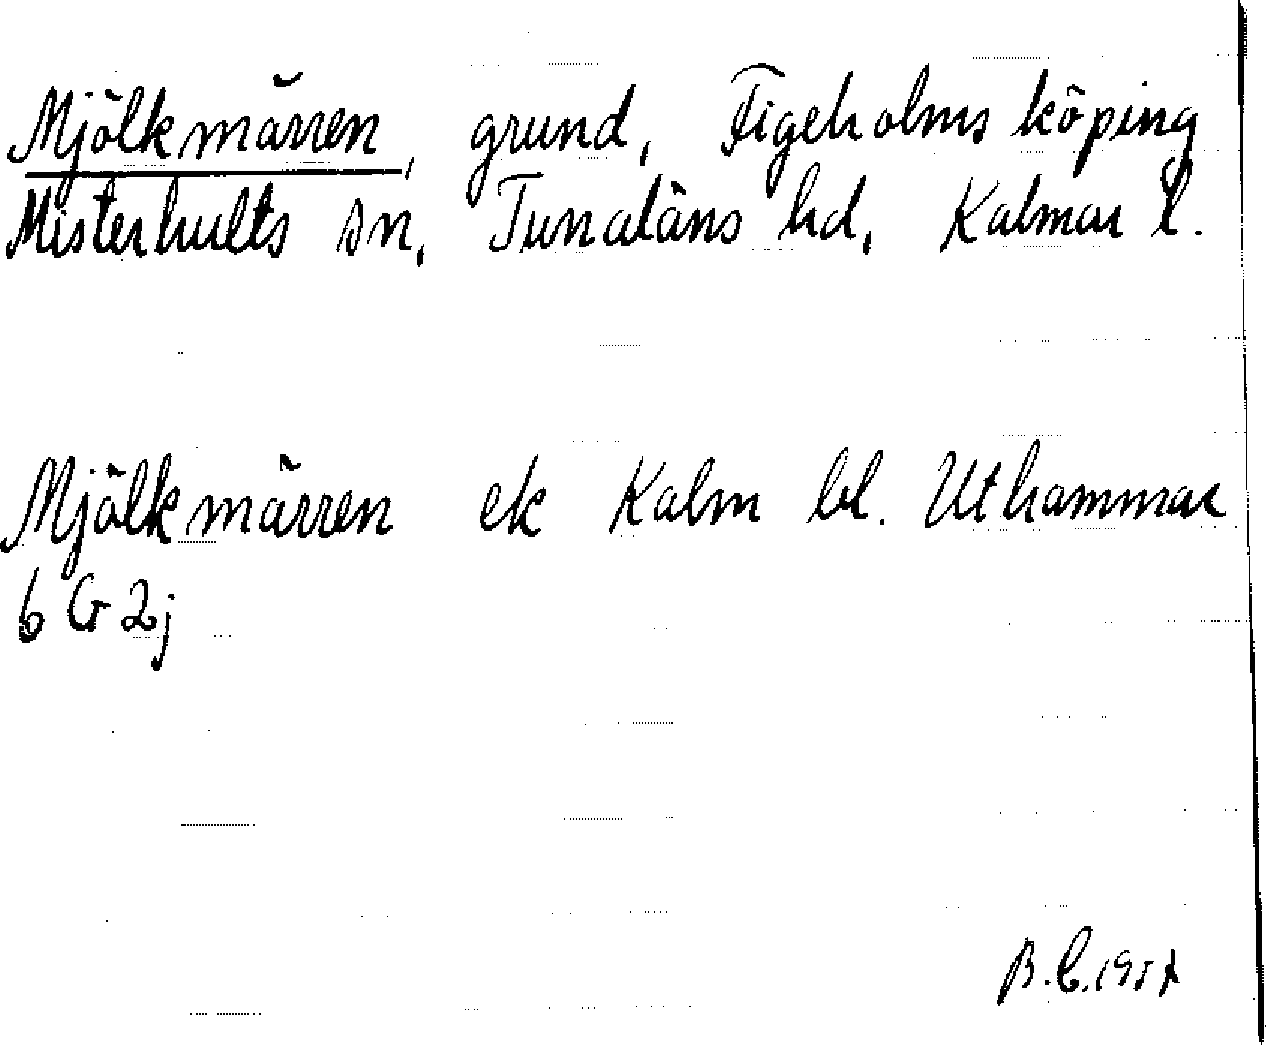 Mjölkmärren, grund, Figeholms köping
Misterhults sn, Tunaläns hd, Kalmar l.
Mjölkmärren ek Kalm bl. Uthammar
6 G 2j
B.C.